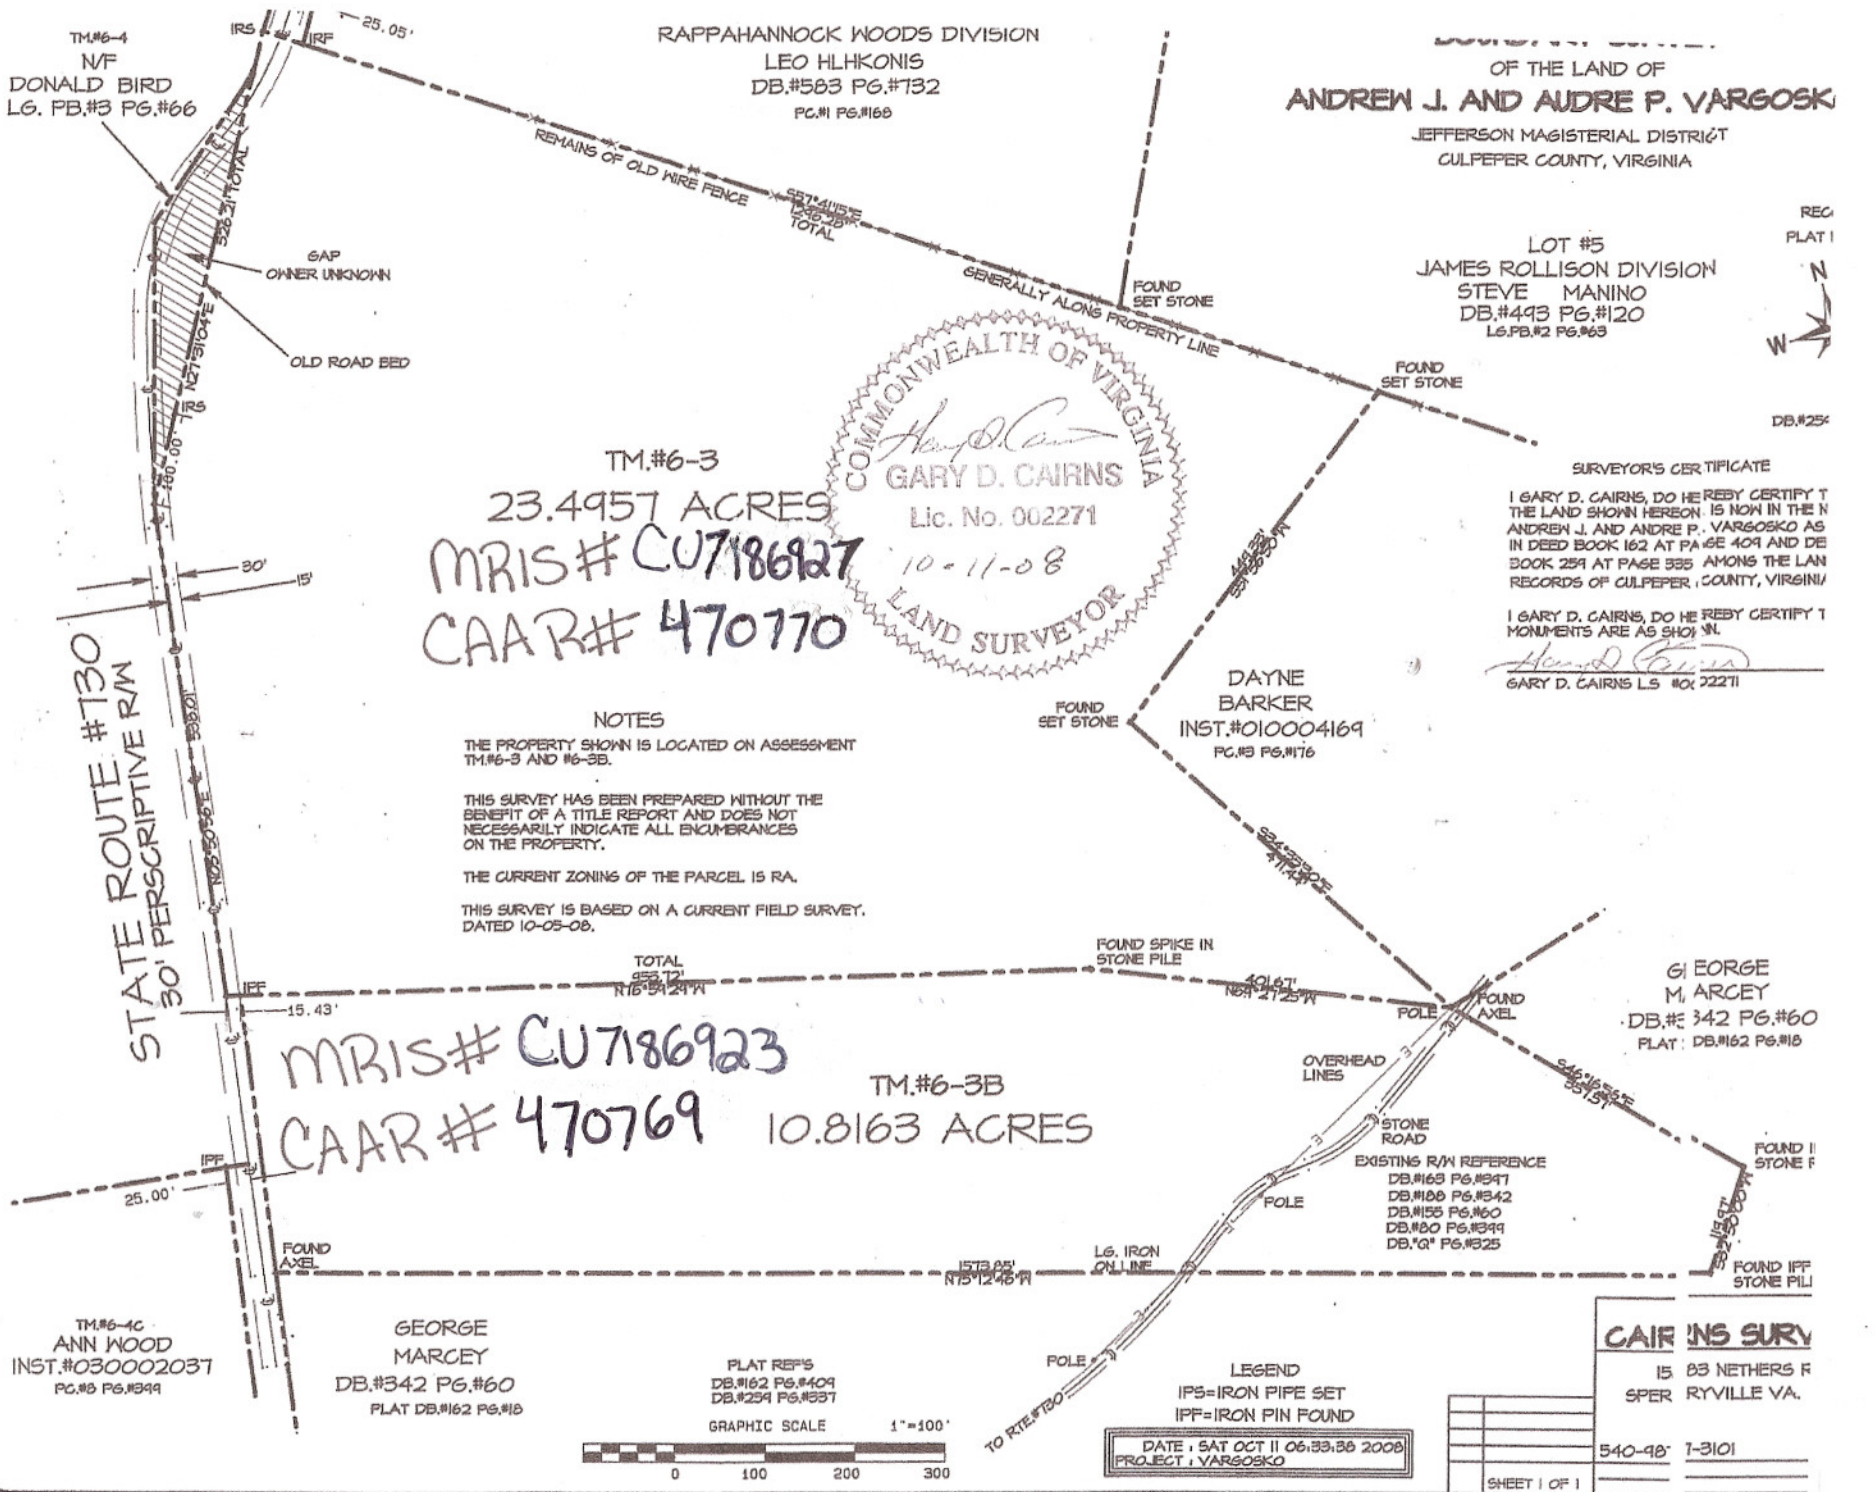 TM.#6-4
N/F
DONALD BIRD
LG. PB.#3 PG.#66
IRS
IRF
25.05'
RAPPAHANNOCK WOODS DIVISION
LEO HLHKONIS
DB.#583 PG.#732
PC.#1 PG.#168
OF THE LAND OF
ANDREW J. AND AUDRE P. VARGOSK
JEFFERSON MAGISTERIAL DISTRICT
CULPEPER COUNTY, VIRGINIA
REC
PLAT
N
W
LOT #5
JAMES ROLLISON DIVISION
STEVE MANINO
DB.#493 PG.#120
LG.PB.#2 PG.#63
DB.#25
REMAINS OF OLD WIRE FENCE
S57°41'15"E
TOTAL
GENERALLY ALONG PROPERTY LINE
FOUND
SET STONE
FOUND
SET STONE
526.21' TOTAL
N27°31'04"E
GAP
OWNER UNKNOWN
OLD ROAD BED
IRS
100.00'
30'
15'
TM.#6-3
23.4957 ACRES
MRIS# CU7186927
CAAR# 470770
COMMONWEALTH OF VIRGINIA
GARY D. CAIRNS
Lic. No. 002271
10-11-08
LAND SURVEYOR
SURVEYOR'S CERTIFICATE
I GARY D. CAIRNS, DO HEREBY CERTIFY T
THE LAND SHOWN HEREON IS NOW IN THE N
ANDREW J. AND ANDRE P. VARGOSKO AS
IN DEED BOOK 162 AT PAGE 409 AND DE
BOOK 259 AT PAGE 335 AMONG THE LAN
RECORDS OF CULPEPER COUNTY, VIRGINIA
I GARY D. CAIRNS, DO HEREBY CERTIFY T
MONUMENTS ARE AS SHOWN.
GARY D. CAIRNS L.S #002271
STATE ROUTE #730
30' PERSCRIPTIVE R/W
NOTES
THE PROPERTY SHOWN IS LOCATED ON ASSESSMENT
TM.#6-3 AND #6-3B.
THIS SURVEY HAS BEEN PREPARED WITHOUT THE
BENEFIT OF A TITLE REPORT AND DOES NOT
NECESSARILY INDICATE ALL ENCUMBRANCES
ON THE PROPERTY.
THE CURRENT ZONING OF THE PARCEL IS RA.
THIS SURVEY IS BASED ON A CURRENT FIELD SURVEY.
DATED 10-05-08.
FOUND
SET STONE
DAYNE
BARKER
INST.#010004169
PC.#3 PG.#176
FOUND SPIKE IN
STONE PILE
TOTAL
955.72'
N76°59'29"W
401.67'
N69°27'25"W
IPF
15.43'
POLE
FOUND
AXEL
GEORGE
MARCEY
DB.#342 PG.#60
PLAT DB.#162 PG.#18
MRIS# CU7186923
CAAR# 470769
TM.#6-3B
10.8163 ACRES
OVERHEAD
LINES
STONE
ROAD
EXISTING R/W REFERENCE
DB.#163 PG.#397
DB.#188 PG.#342
DB.#155 PG.#60
DB.#80 PG.#399
DB."Q" PG.#325
POLE
IPF
25.00'
FOUND
AXEL
LG. IRON
ON LINE
1573.85'
N75°12'45"W
FOUND I
STONE P
FOUND IPF
STONE PIL
TM.#6-4C
ANN WOOD
INST.#030002037
PC.#8 PG.#399
GEORGE
MARCEY
DB.#342 PG.#60
PLAT DB.#162 PG.#18
PLAT REF'S
DB.#162 PG.#409
DB.#259 PG.#337
GRAPHIC SCALE 1"=100'
0 100 200 300
POLE
TO RTE.#730
LEGEND
IPS=IRON PIPE SET
IPF=IRON PIN FOUND
DATE : SAT OCT 11 06:33:38 2008
PROJECT : VARGOSKO
CAIRNS SURV
1583 NETHERS R
SPERRYVILLE VA.
540-987-3101
SHEET 1 OF 1